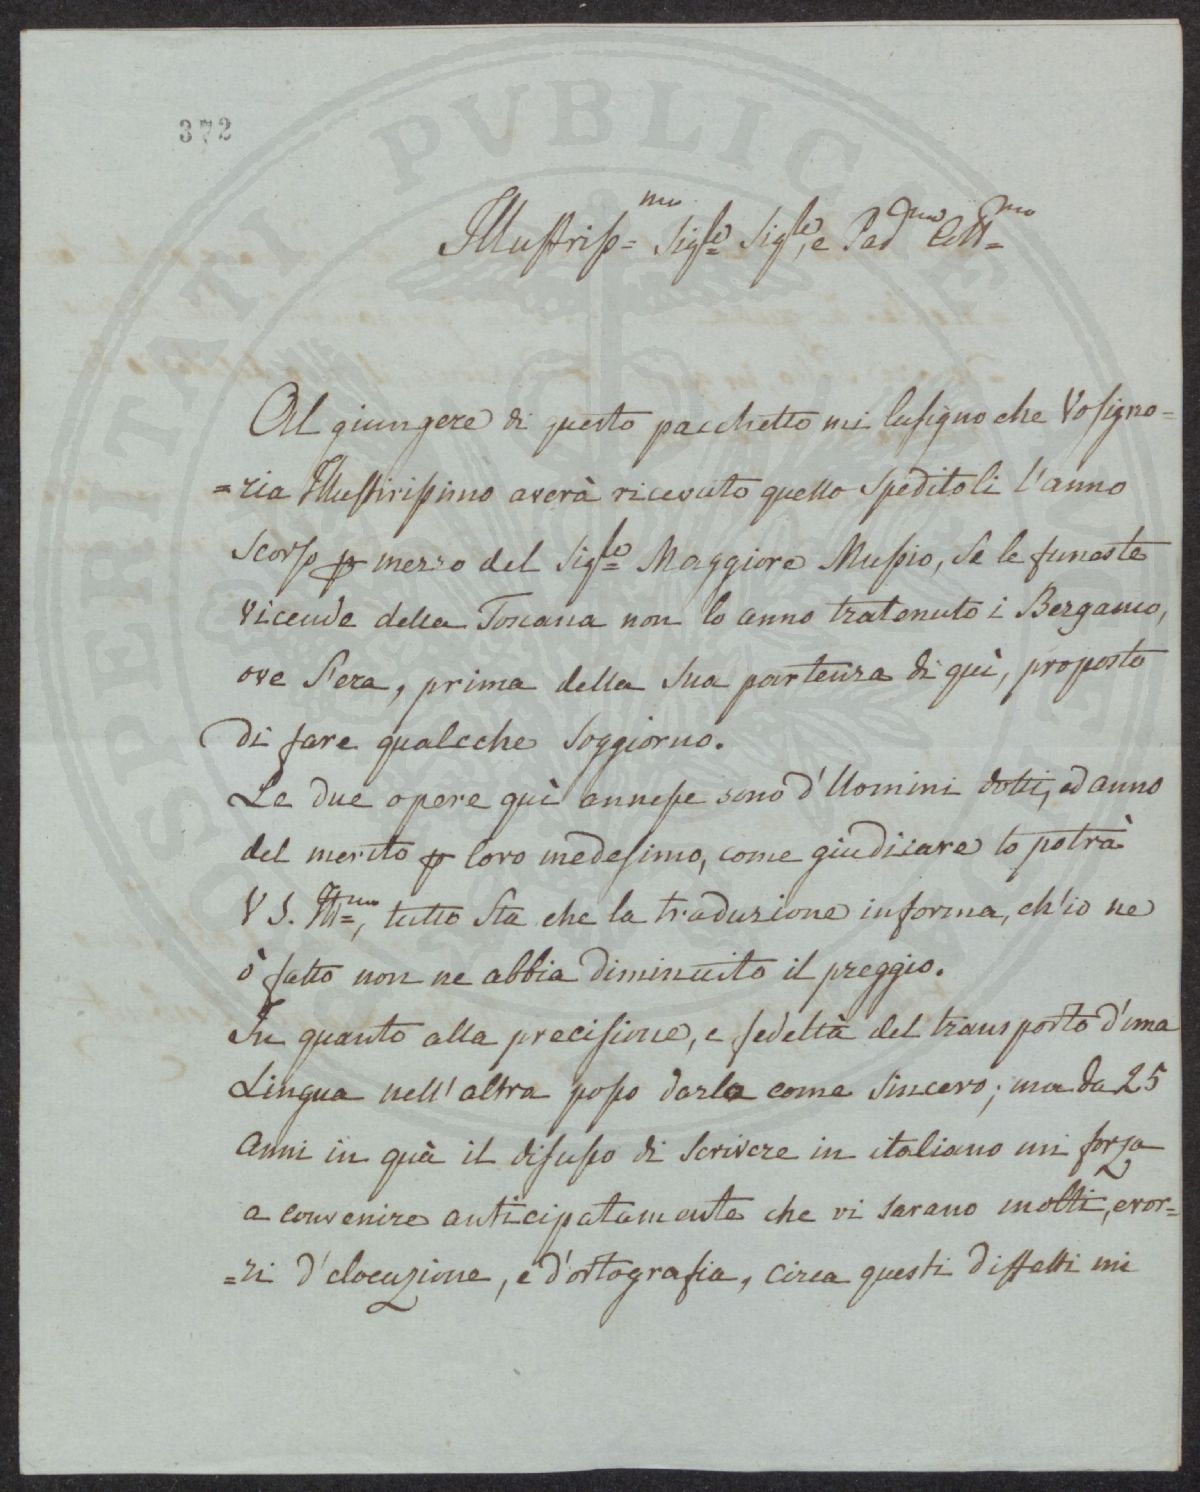 372
Illustriss=mo Sigre= Sigre, e Padmo Coll=mo
Al giungere di questo pacchetto mi lusigno che Vosigno=
=ria Illustirissimo averà ricevuto quello speditoli l'anno
scorso p mezzo del Sigre= Maggiore Mussio, se le funeste
vicende della Toscana non lo anno tratenuto i Bergamo,
ove s'era, prima della sua partenza di qui, proposto
di fare qualcche soggiorno.
Le due opere quì annesse sono d'Uomini dotti, ed anno
del merito p loro medesimo, come giudicare lo potrà
V S. Ill=mo, tutto sta che la traduzione informa, ch'io ne
ò fatto non ne abbia diminuito il preggio.
In quanto alla precisione, e fedeltà del transporto d'una
Lingua nell'altra posso darla come sincero; ma da 25
anni in quà il disusso di scrivere in italiano mi forza
a convenire anticipatamente che vi sarano molti, eror=
=ri d'elocuzione, e d'ortografia, circa questi diffetti mi
PROSPERITATI PVBLICAE